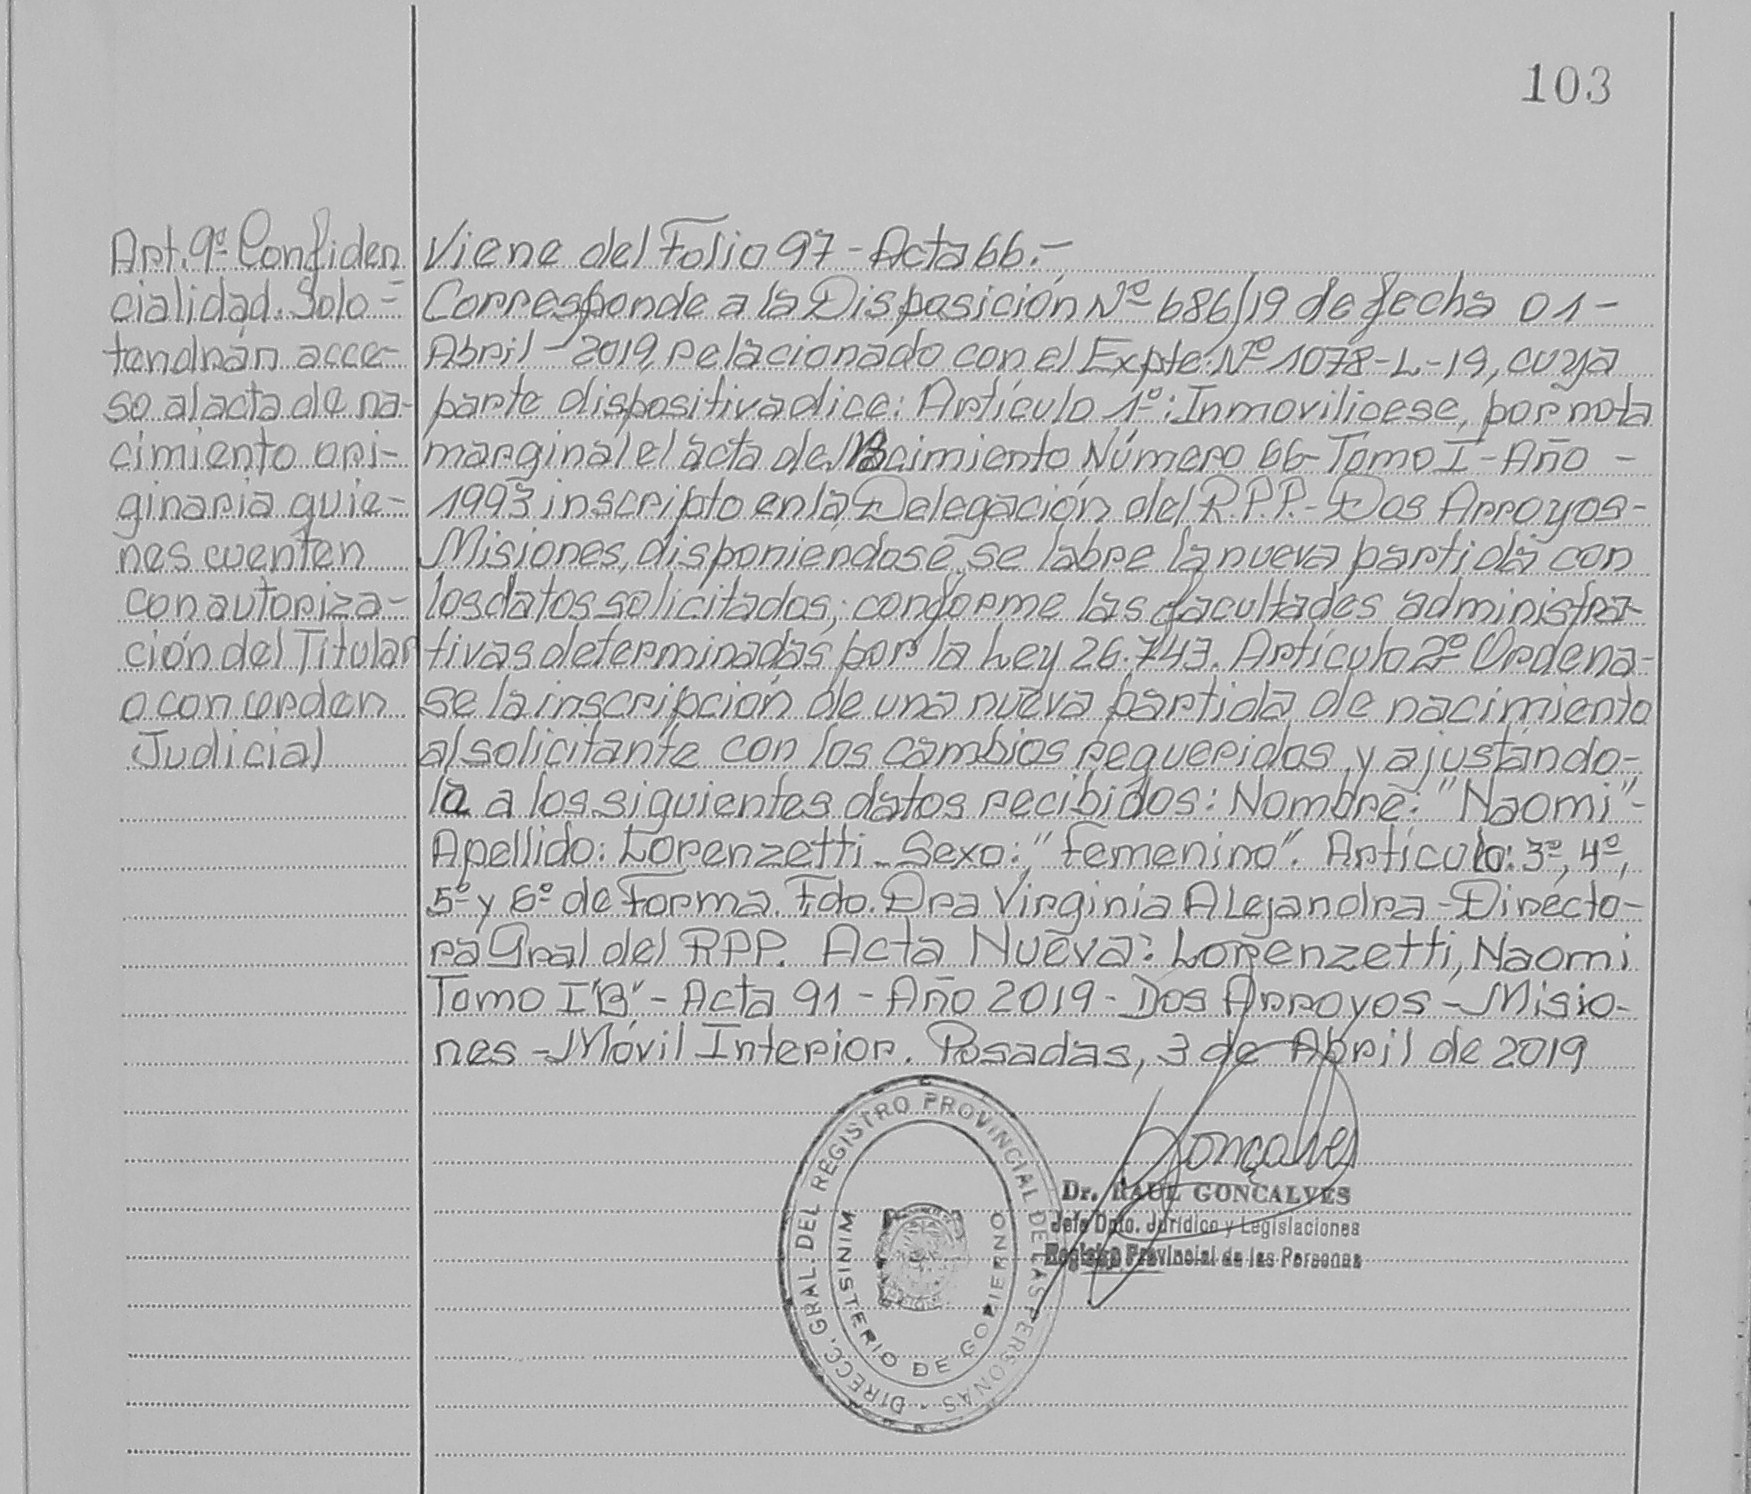 103
Art. 9º Confiden
cialidad. Solo =
tendrán acce-
so al acta de na-
cimiento ori-
ginaria quie-
nes cuenten
con autoriza-
ción del Titular
o con orden
Judicial
Viene del Folio 97 - Acta 66.-
Corresponde a la Disposición Nº 686/19 de fecha 01-
Abril - 2019, relacionado con el Expte: Nº 1078-L-19, cuya
parte dispositiva dice: Artículo 1º: Inmovilicese, por nota
marginal el acta de Nacimiento Número 66 - Tomo I - Año -
1993 inscripto en la Delegación del R.P.P. - Dos Arroyos -
Misiones, disponiendose se labre la nueva partida con
los datos solicitados, conforme las facultades administra-
tivas determinadas por la Ley 26.743. Artículo 2º Ordena-
se la inscripción de una nueva partida de nacimiento
al solicitante con los cambios requeridos, y ajustándo-
la a los siguientes datos recibidos: Nombre: "Naomi" -
Apellido: Lorenzetti - Sexo: "Femenino". Artículo: 3º, 4º,
5º y 6º de Forma. Fdo. Dra Virginia Alejandra - Directo-
ra Gral del RPP. Acta Nueva: Lorenzetti, Naomi
Tomo I "B" - Acta 91 - Año 2019 - Dos Arroyos - Misio-
nes - Móvil Interior. Posadas, 3 de Abril de 2019
DIRECC. GRAL. DEL REGISTRO PROVINCIAL DE LAS PERSONAS -
MINISTERIO DE GOBIERNO
Goncalves
Dr. RAUL GONCALVES
Jefe Dpto. Jurídico y Legislaciones
Registro Provincial de las Personas